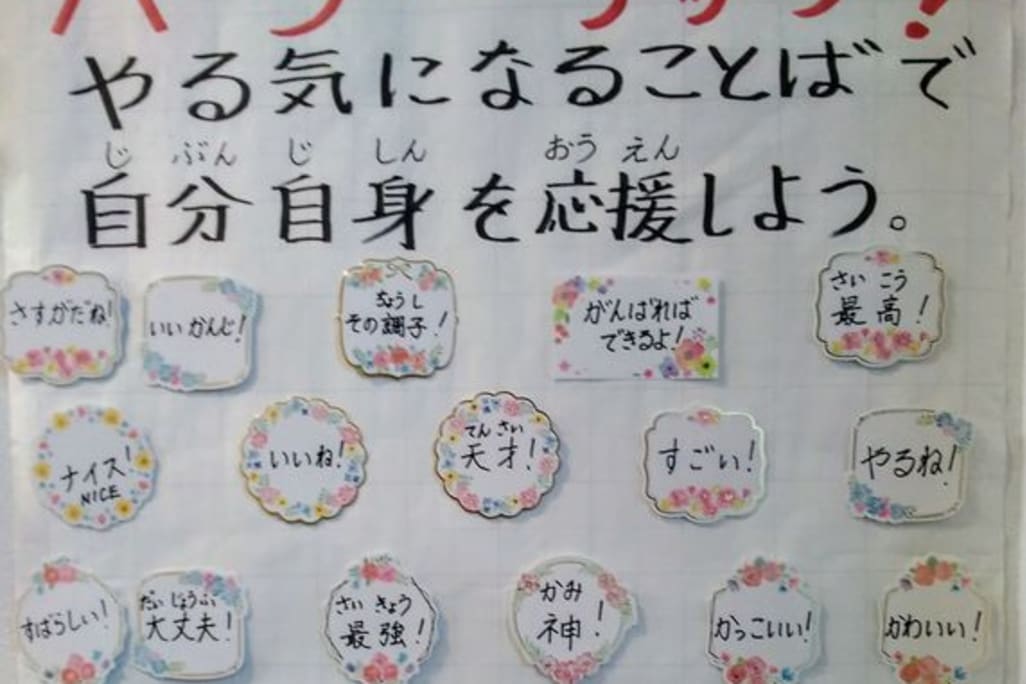 やる気になることばで
じぶんじしん おうえん
自分自身を応援しよう。
さすがだね!
いいかんじ!
ちょうし
その調子!
がんばれば
できるよ!
さいこう
最高!
ナイス!
NICE
いいね!
てんさい
天才!
すごい!
やるね!
すばらしい!
だいじょうぶ
大丈夫!
さいきょう
最強!
かみ
神!
かっこいい!
かわいい!